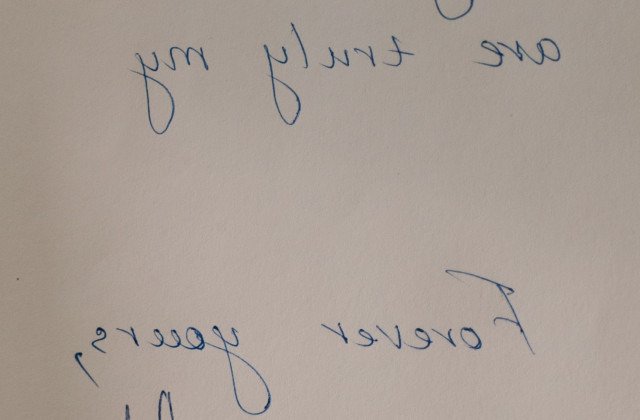 are truly my
Forever yours,